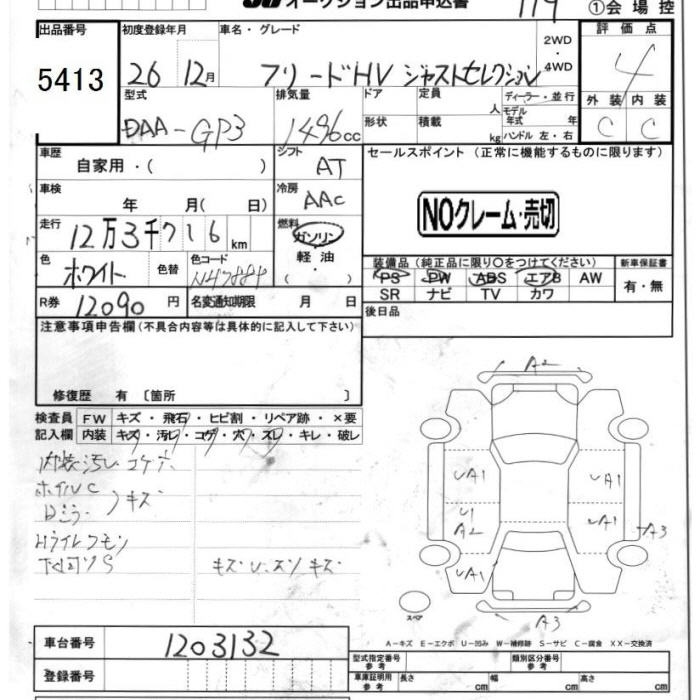 オークション出品申込書 119 ①会場控
出品番号 初度登録年月 車名・グレード 評価点
5413 26 12月 フリードHV ジャストセレクション 2WD ・ 4WD 4
型式 排気量 ドア 定員 人 ディーラー・並行 外装 内装
DAA-GP3 1496cc 形状 積載 kg モデル年式 年式 ハンドル 左・右 C C
車歴 自家用・( ) シフト AT セールスポイント (正常に機能するものに限ります)
車検 年 月( 日) 冷房 AAC
NOクレーム・売切
走行 12万3千716 km 燃料 ガソリン
軽油・( )
色 ホワイト 色替 色コード 装備品 (純正品に限り○をつけてください) 新車保証書
PS PW ABS エアB AW 有・無
SR ナビ TV カワ
R券 12090 円 名変通知期限 月 日 後日品
注意事項申告欄 (不具合内容等は具体的に記入して下さい)
修復歴 有 〔箇所 〕
検査員 FW キズ・飛石・ヒビ割・リペア跡・×要
記入欄 内装 キズ・汚レ・コゲ・穴・スレ・キレ・破レ
内装汚レ コゲ 穴
ホイルC キズ
A2
UA1 UA1
U1
A2 UA1 A3
UA1 UA1
スペア
A3
A－キズ E－エクボ U－凹み W－補修跡 S－サビ C－腐食 XX－交換済
車台番号 1203132
登録番号
型式指定番号 参考 類別区分番号 参考
車庫証明用 参考 長さ cm 幅 cm 高さ cm